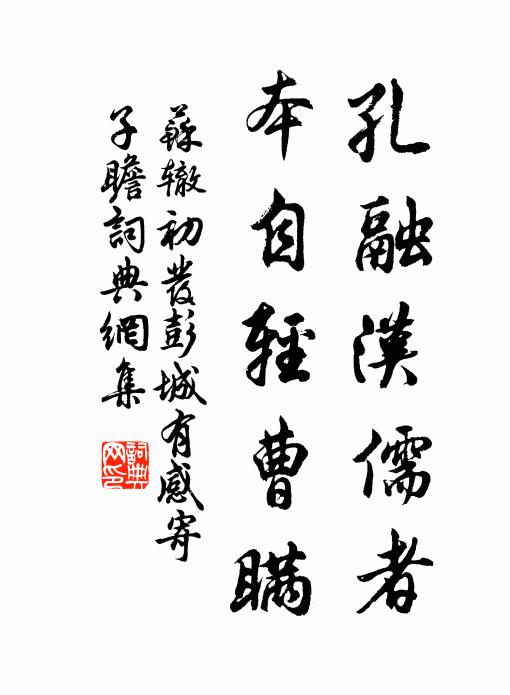 孔融漢儒者
本自輕曹瞞
蘇轍初發彭城有感寄
子瞻詞典網集
詞典
网印